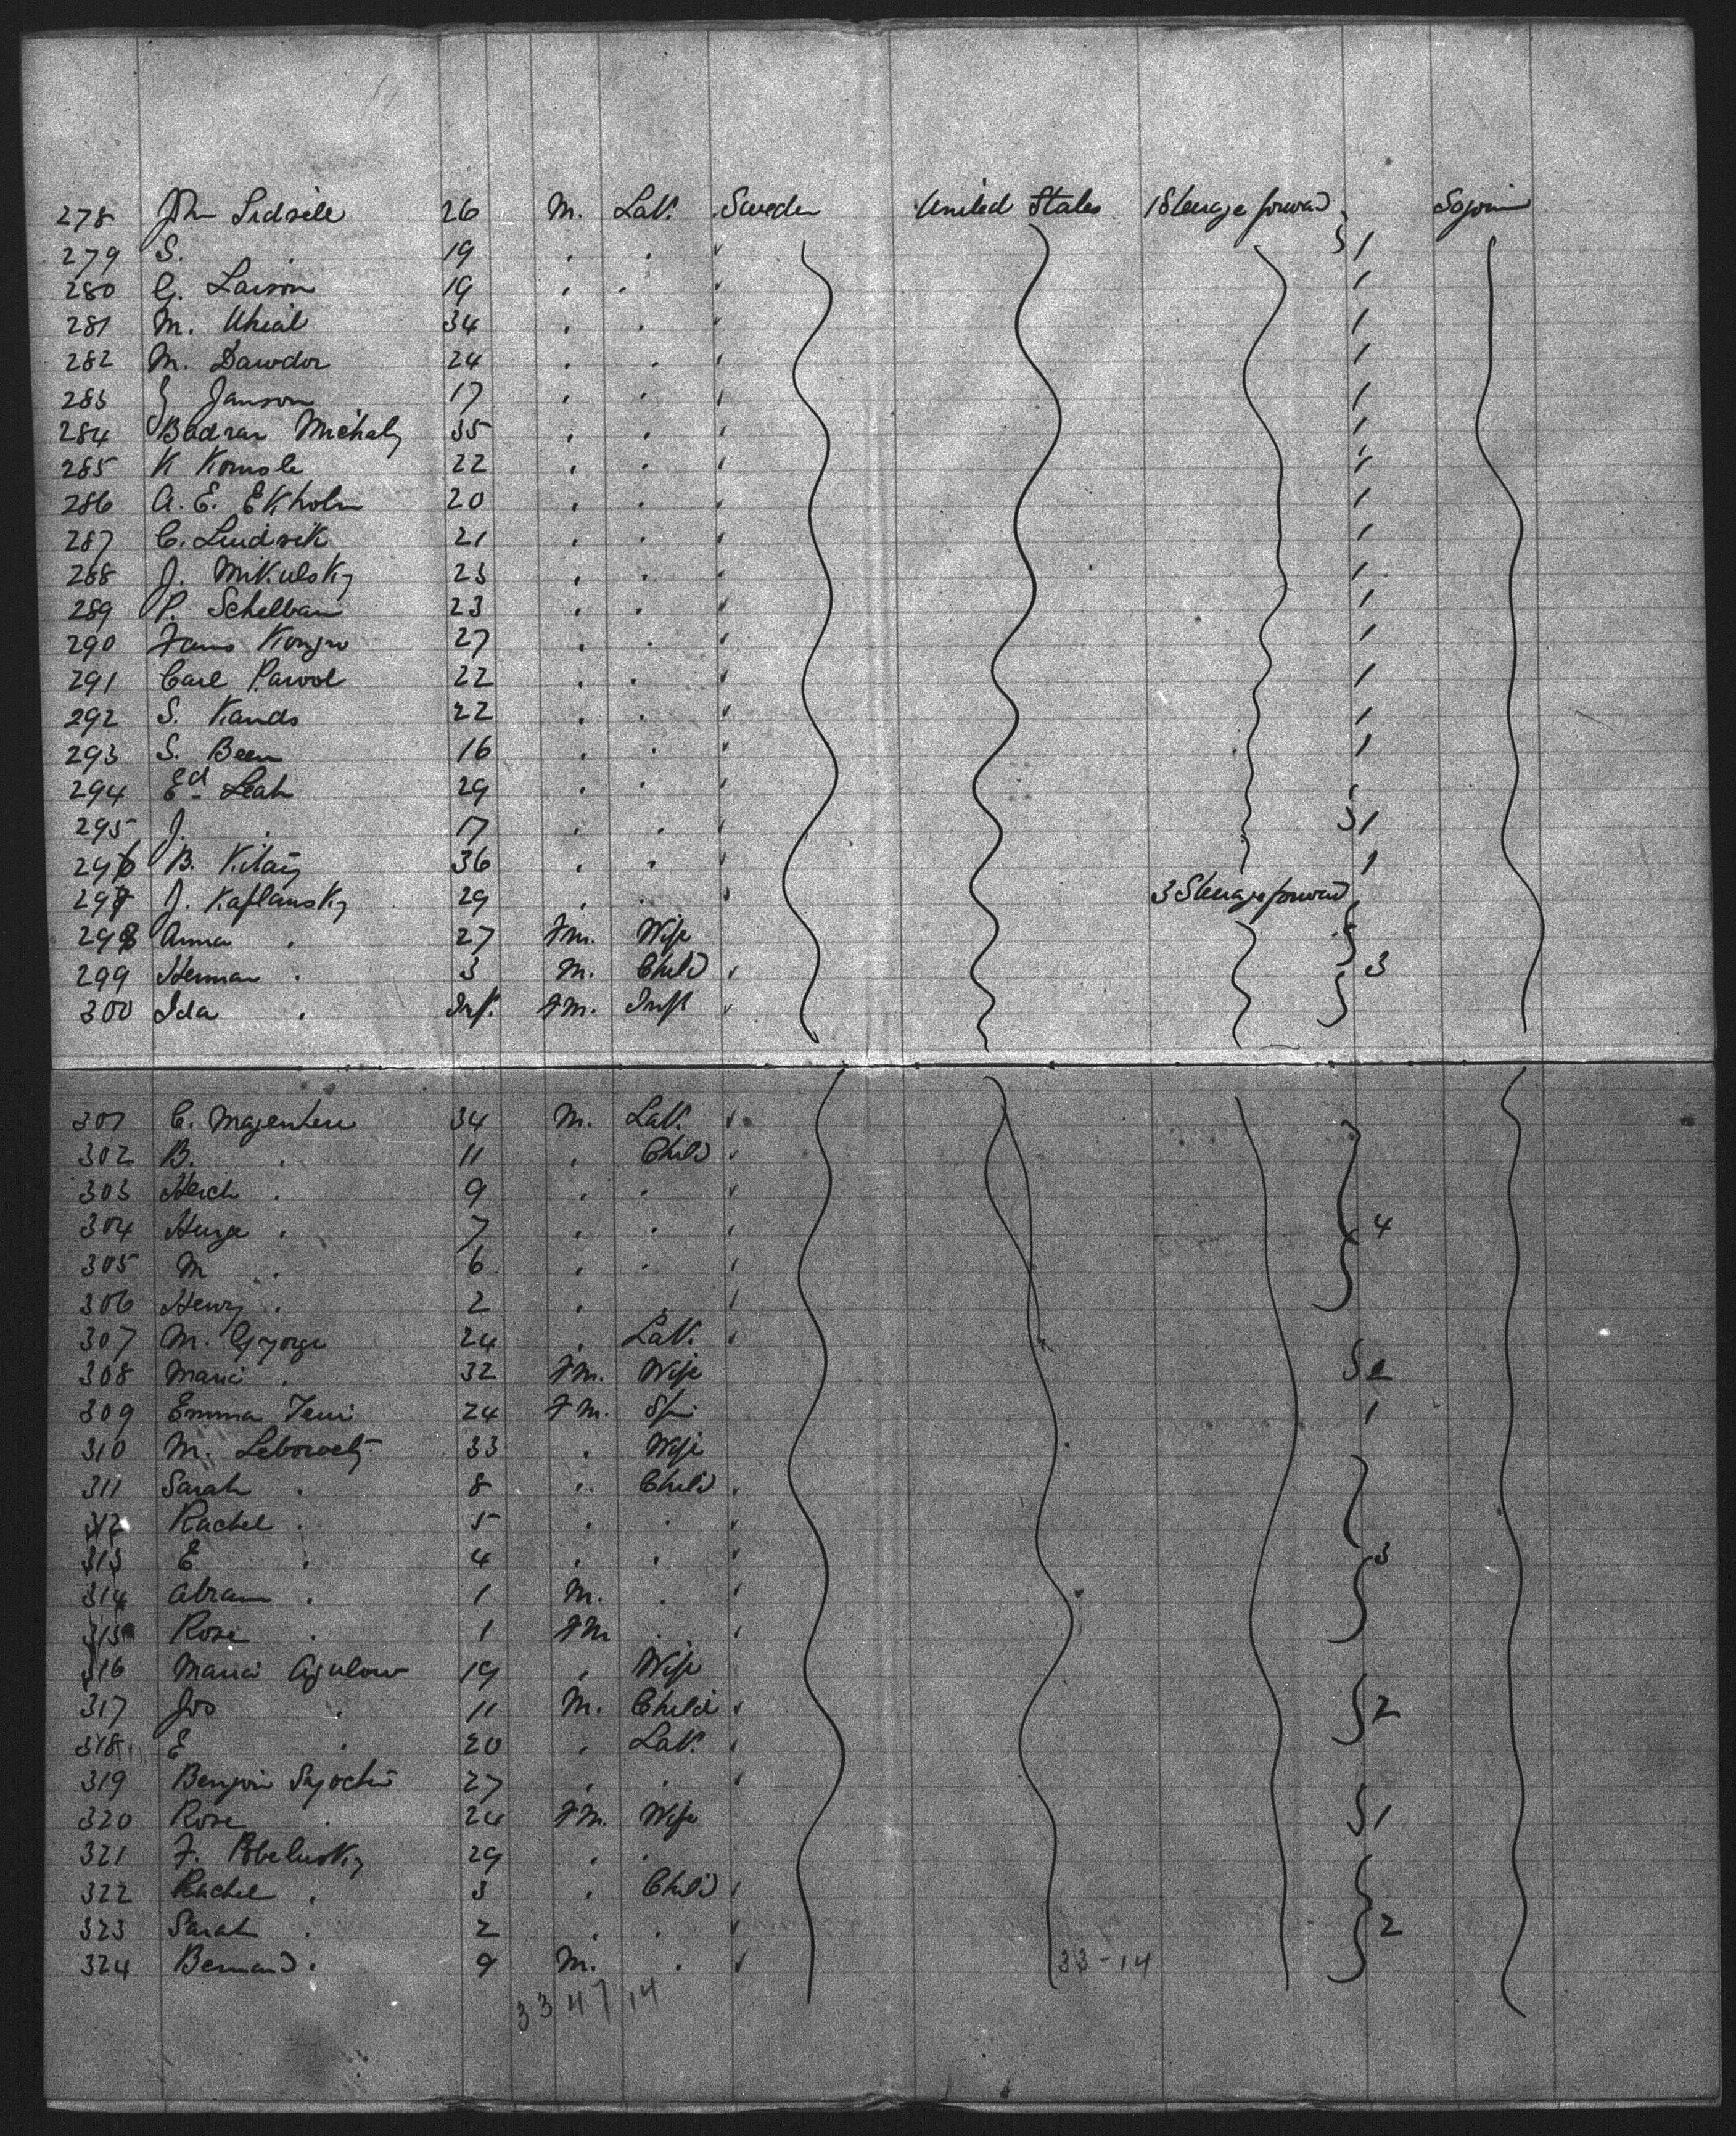 278 John Lidsele 26 M. Lab. Sweden United States 1 Steerage forward Sojourn
279 S. " 19 " " " 1
280 G. Larson 19 " " " 1
281 M. 34 " " " 1
282 M. Dawdor 24 " " " 1
283 J Janson 17 " " " 1
284 Badrar Michaly 35 " " " 1
285 K Komsle 22 " " " 1
286 A. E. Ekholm 20 " " " 1
287 C. Lindsik 21 " " " 1
288 J. Mikulsky 23 " " " 1
289 P. Schelban 23 " " " 1
290 27 " " " 1
291 Carl Pawol 22 " " " 1
292 S. Kands 22 " " " 1
293 S. Been 16 " " " 1
294 Ed Leah 29 " " "
295 J. " 17 " " " 1
296 B. Kitaij 36 " " " 1
297 J. Kaplansky 29 " " " 3 Steerage forward
298 Anna " 27 Fm. Wife
299 Herman " 3 M. Child " 3
300 Ida " Inf. Fm. Inft "
301 C. Majenteri 34 M. Lab. "
302 B. " 11 " Child "
303 Herch " 9 " " "
304 " 7 " " " 4
305 M " 6 " " "
306 Henry " 2 " " "
307 M. Gyorge 24 " Lab. "
308 Maria " 32 Fm. Wife 2
309 Emma 24 Fm. Spi 1
310 M. Lebowetz 33 " Wife
311 Sarah " 8 " Child "
312 Rachel " 5 " " "
313 E " 4 " " " 3
314 Abram " 1 M. " "
315 Rose " 1 Fm " "
316 Maria Agulow 19 " Wife
317 Jos " 11 M. Child " 2
318 E " 20 " Lab. "
319 27 " " "
320 Rose " 24 Fm. Wife 1
321 F. Pobelusky 29 " "
322 Rachel " 3 " Child "
323 Sarah " 2 " " " 2
324 Bernard " 9 M. " " 33-14
33 47 14